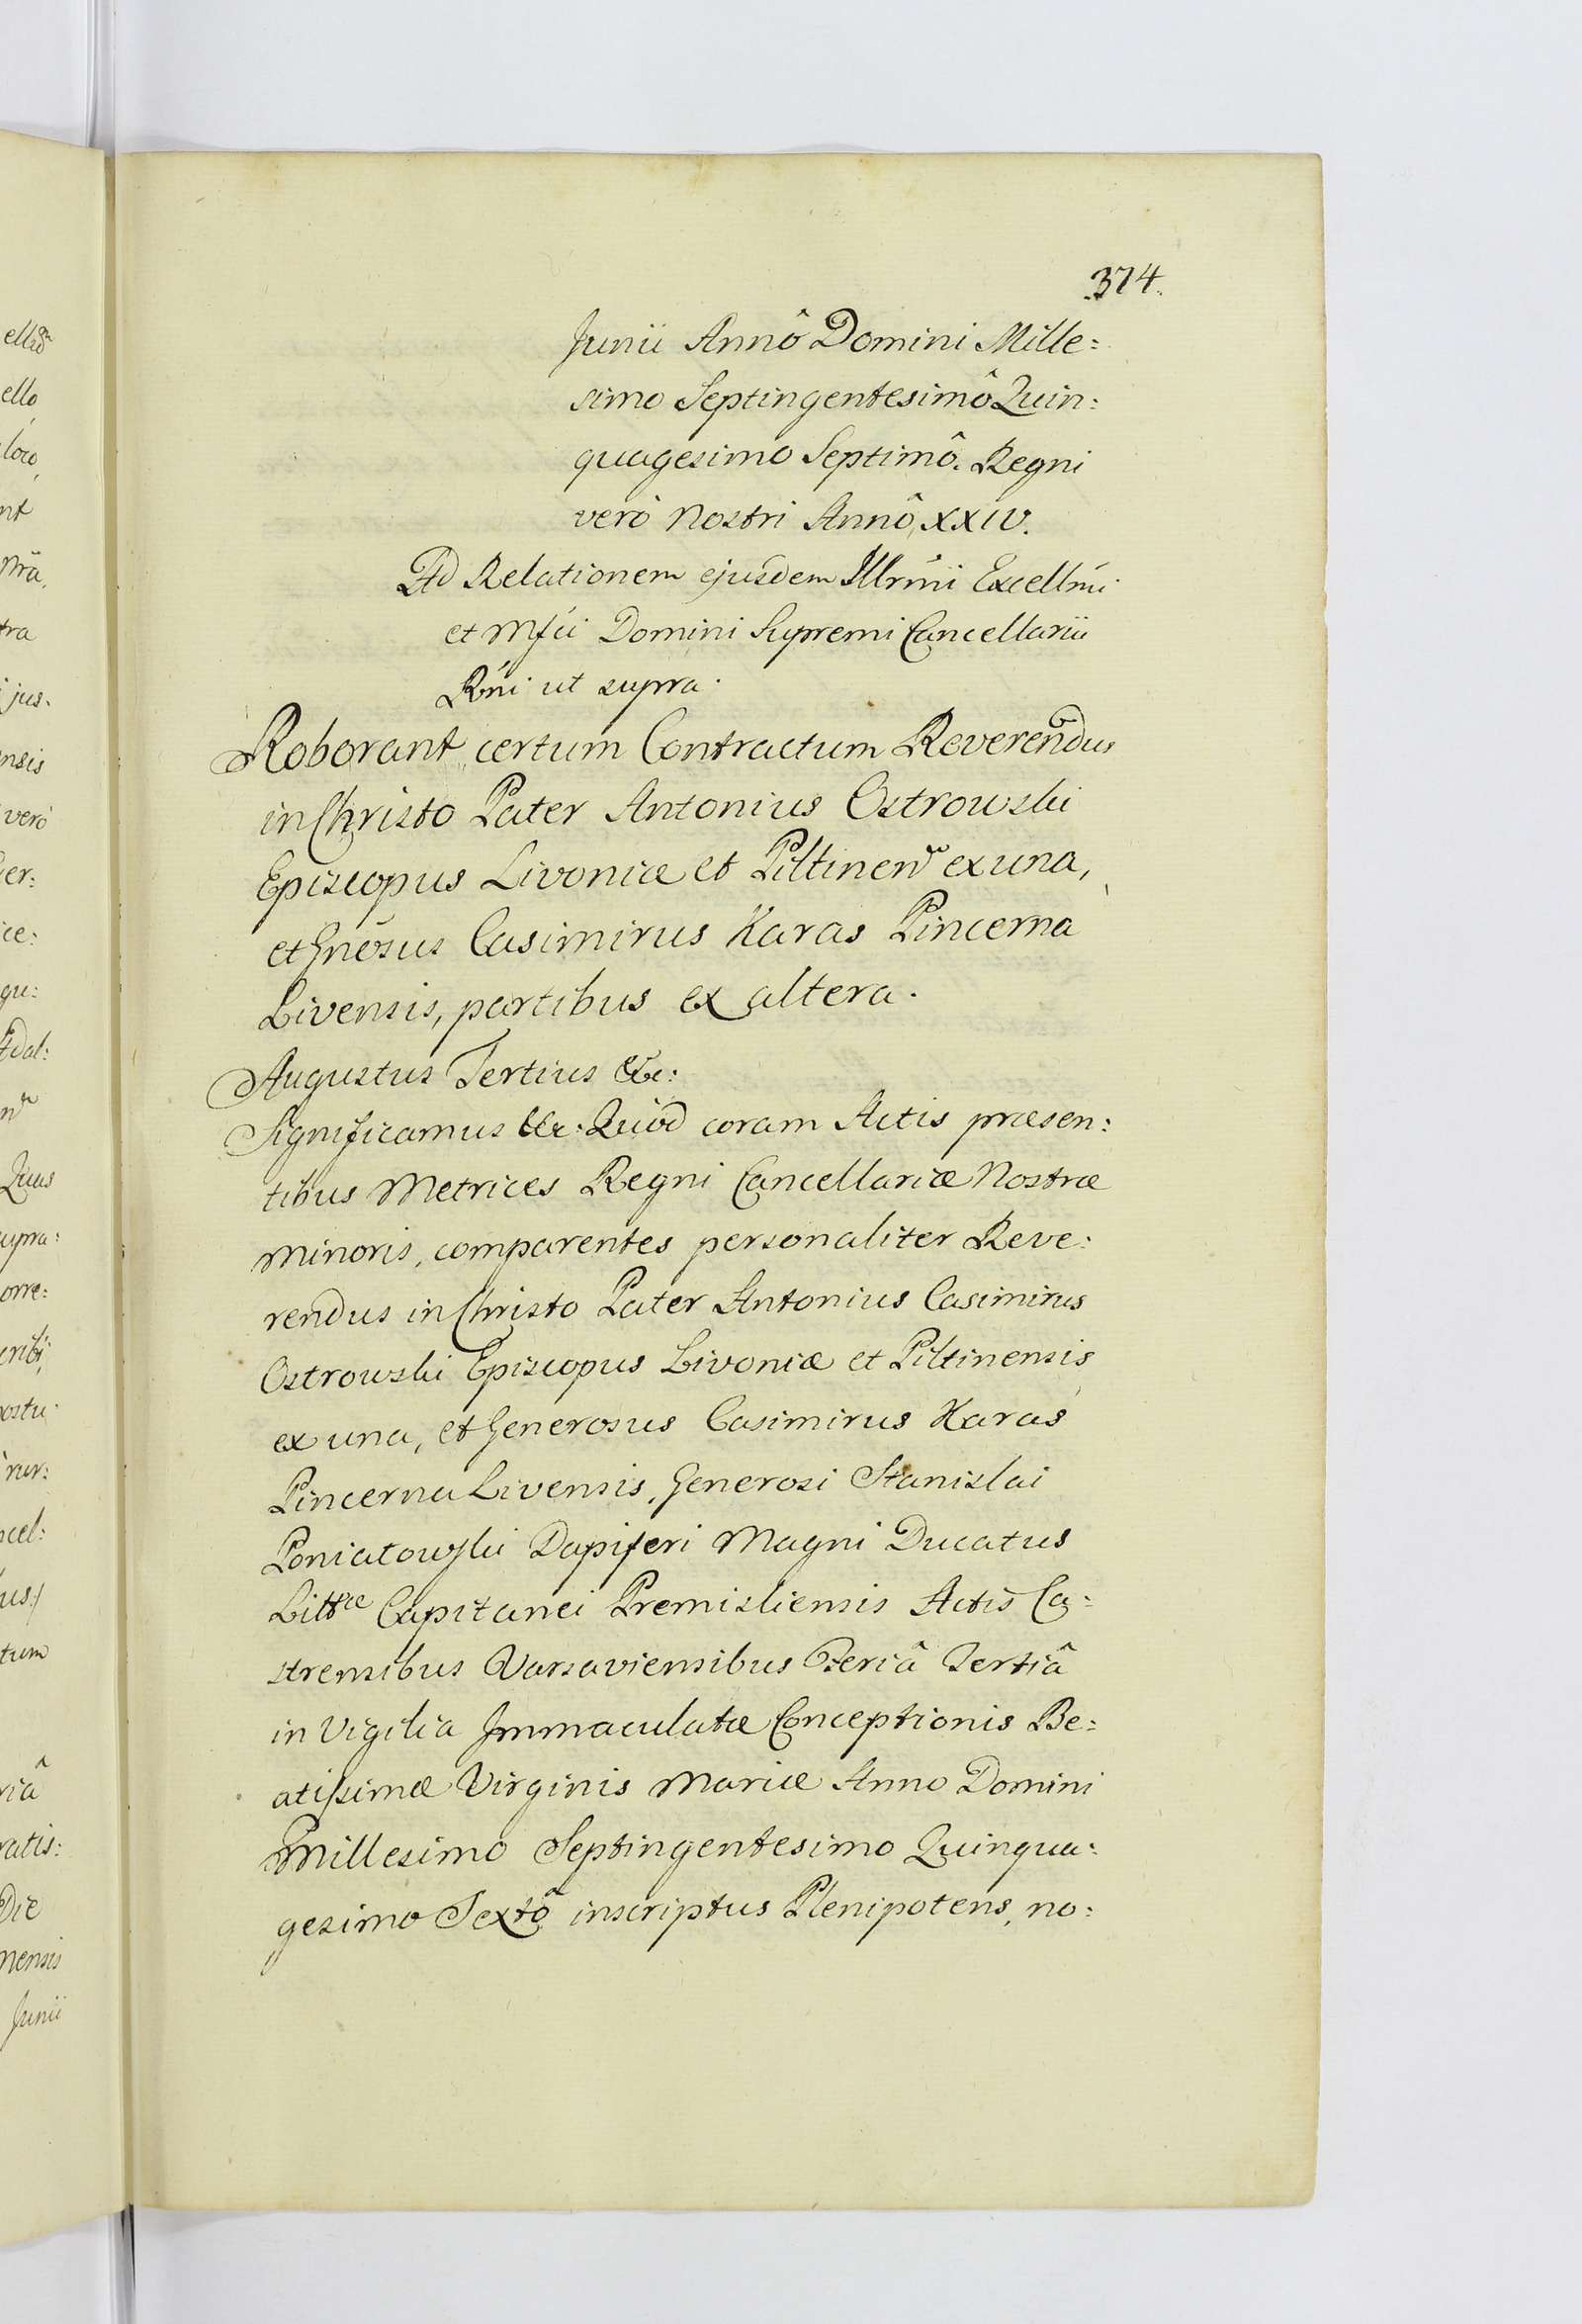 374.
Junii Annô Domini Mille:
simo Septingentesimô Quin:
quagesimo Septimô. Regni
verò Nostri Annô XXIV.
Ad Relationem ejusdem Illrmi Excellmi
et Mfci Domini Supremi Cancellarii
Rni ut supra.
Roborant certum Contractum Reverendus
in Christo Pater Antonius Ostrowski
Episcopus Livoniæ et Piltinen ex una,
et Gnesus Casimirus Karas Pincerna
Livensis, partibus ex altera.
Augustus Tertius &c:
Significamus &c: Quòd coram Actis præsen:
tibus Metrices Regni Cancellariæ Nostræ
Minoris, comparentes personaliter Reve:
rendus in Christo Pater Antonius Casimirus
Ostrowski Episcopus Livoniæ et Piltinensis
ex una, et Generosus Casimirus Karas
Pincerna Livensis, Generosi Stanislai
Poniatowski Dapiferi Magni Ducatus
Littæ Capitanei Premisliensis Actis Ca:
strensibus Varsaviensibus Feriâ Tertiâ
in Vigilia Immaculatæ Conceptionis Be:
atissimæ Virginis Mariæ Anno Domini
Millesimo Septingentesimo Quinqua:
gesimo Sextô inscriptus Plenipotens, no:
ello
loco,
nt
nra,
tra
jus.
ensis
verò
ce:
qu:
Quus
supra:
orre:
cribi,
postu:
rur:
ncel:
tum
riâ
ratis:
Die
nensis
Junii